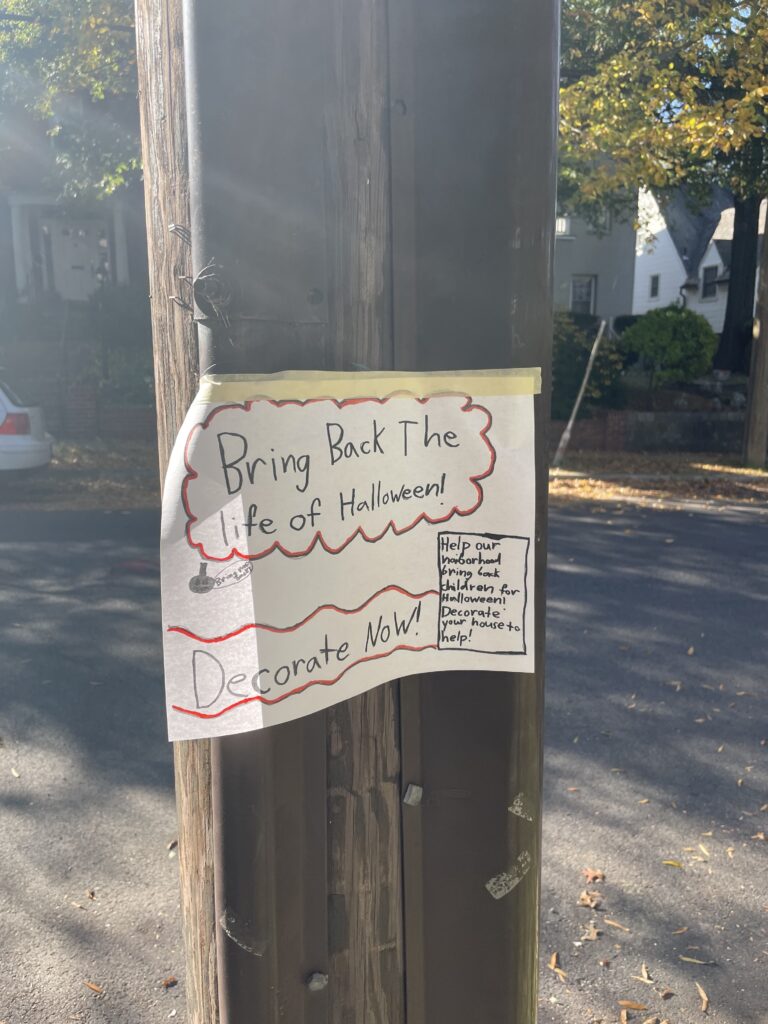 Bring Back The
life of Halloween!
Help our
naiborhood
bring back
children for
Halloween!
Decorate
your house to
help!
Decorate NOW!